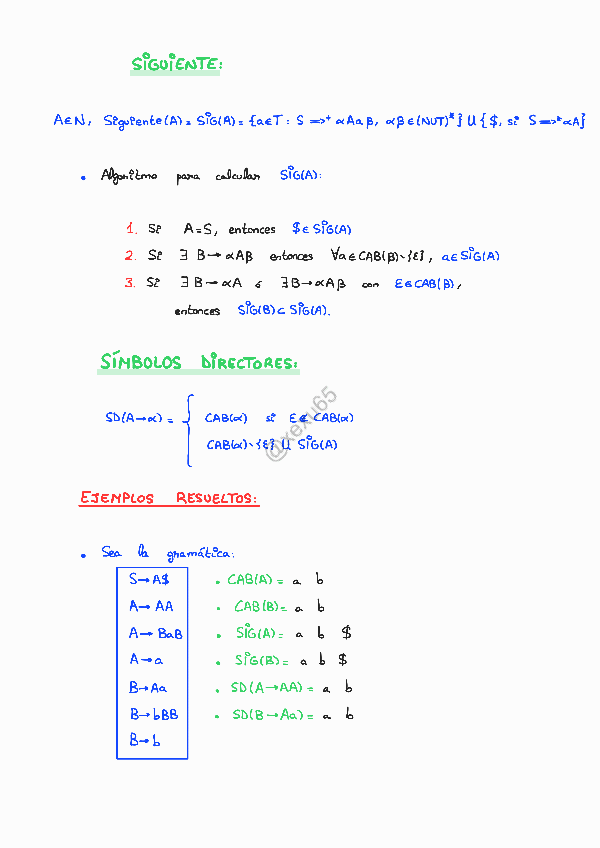 SIGUIENTE:
A∈N, Siguiente(A) = SIG(A) = {a∈T : S =>⁺ αAaβ, αβ∈(NUT)*} U {$, si S =>*αA}
• Algoritmo para calcular SIG(A):
1. Si A=S, entonces $∈SIG(A)
2. Si ∃ B→αAβ entonces ∀a∈CAB(β)\{ε}, a∈SIG(A)
3. Si ∃B→αA ó ∃B→αAβ con ε∈CAB(β),
entonces SIG(B)⊂SIG(A).
SÍMBOLOS DIRECTORES:
SD(A→α) = { CAB(α) si ε∉CAB(α)
CAB(α)\{ε} U SIG(A)
@xexu65
EJEMPLOS RESUELTOS:
• Sea la gramática:
S→A$ • CAB(A) = a b
A→AA • CAB(B) = a b
A→BaB • SIG(A) = a b $
A→a • SIG(B) = a b $
B→Aa • SD(A→AA) = a b
B→bBB • SD(B→Aa) = a b
B→b